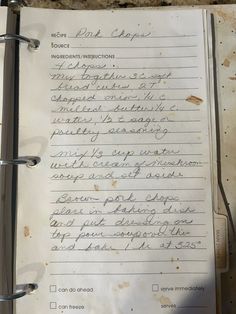 RECIPE Pork Chops
SOURCE
INGREDIENTS/INSTRUCTIONS
4 chops.
Mix together 3 C soft
bread cubes 2 T
chopped onion ¼ C
melted butter ¼ C
water, ½ t sage or
poultry seasoning
mix ⅓ cup water
with cream of mushroom
soup and set aside
Brown pork chops
place in baking dish
and put dressing on
top pour soup over this
and bake 1 hr at 325°
can do ahead
serve immediately
can freeze
serves